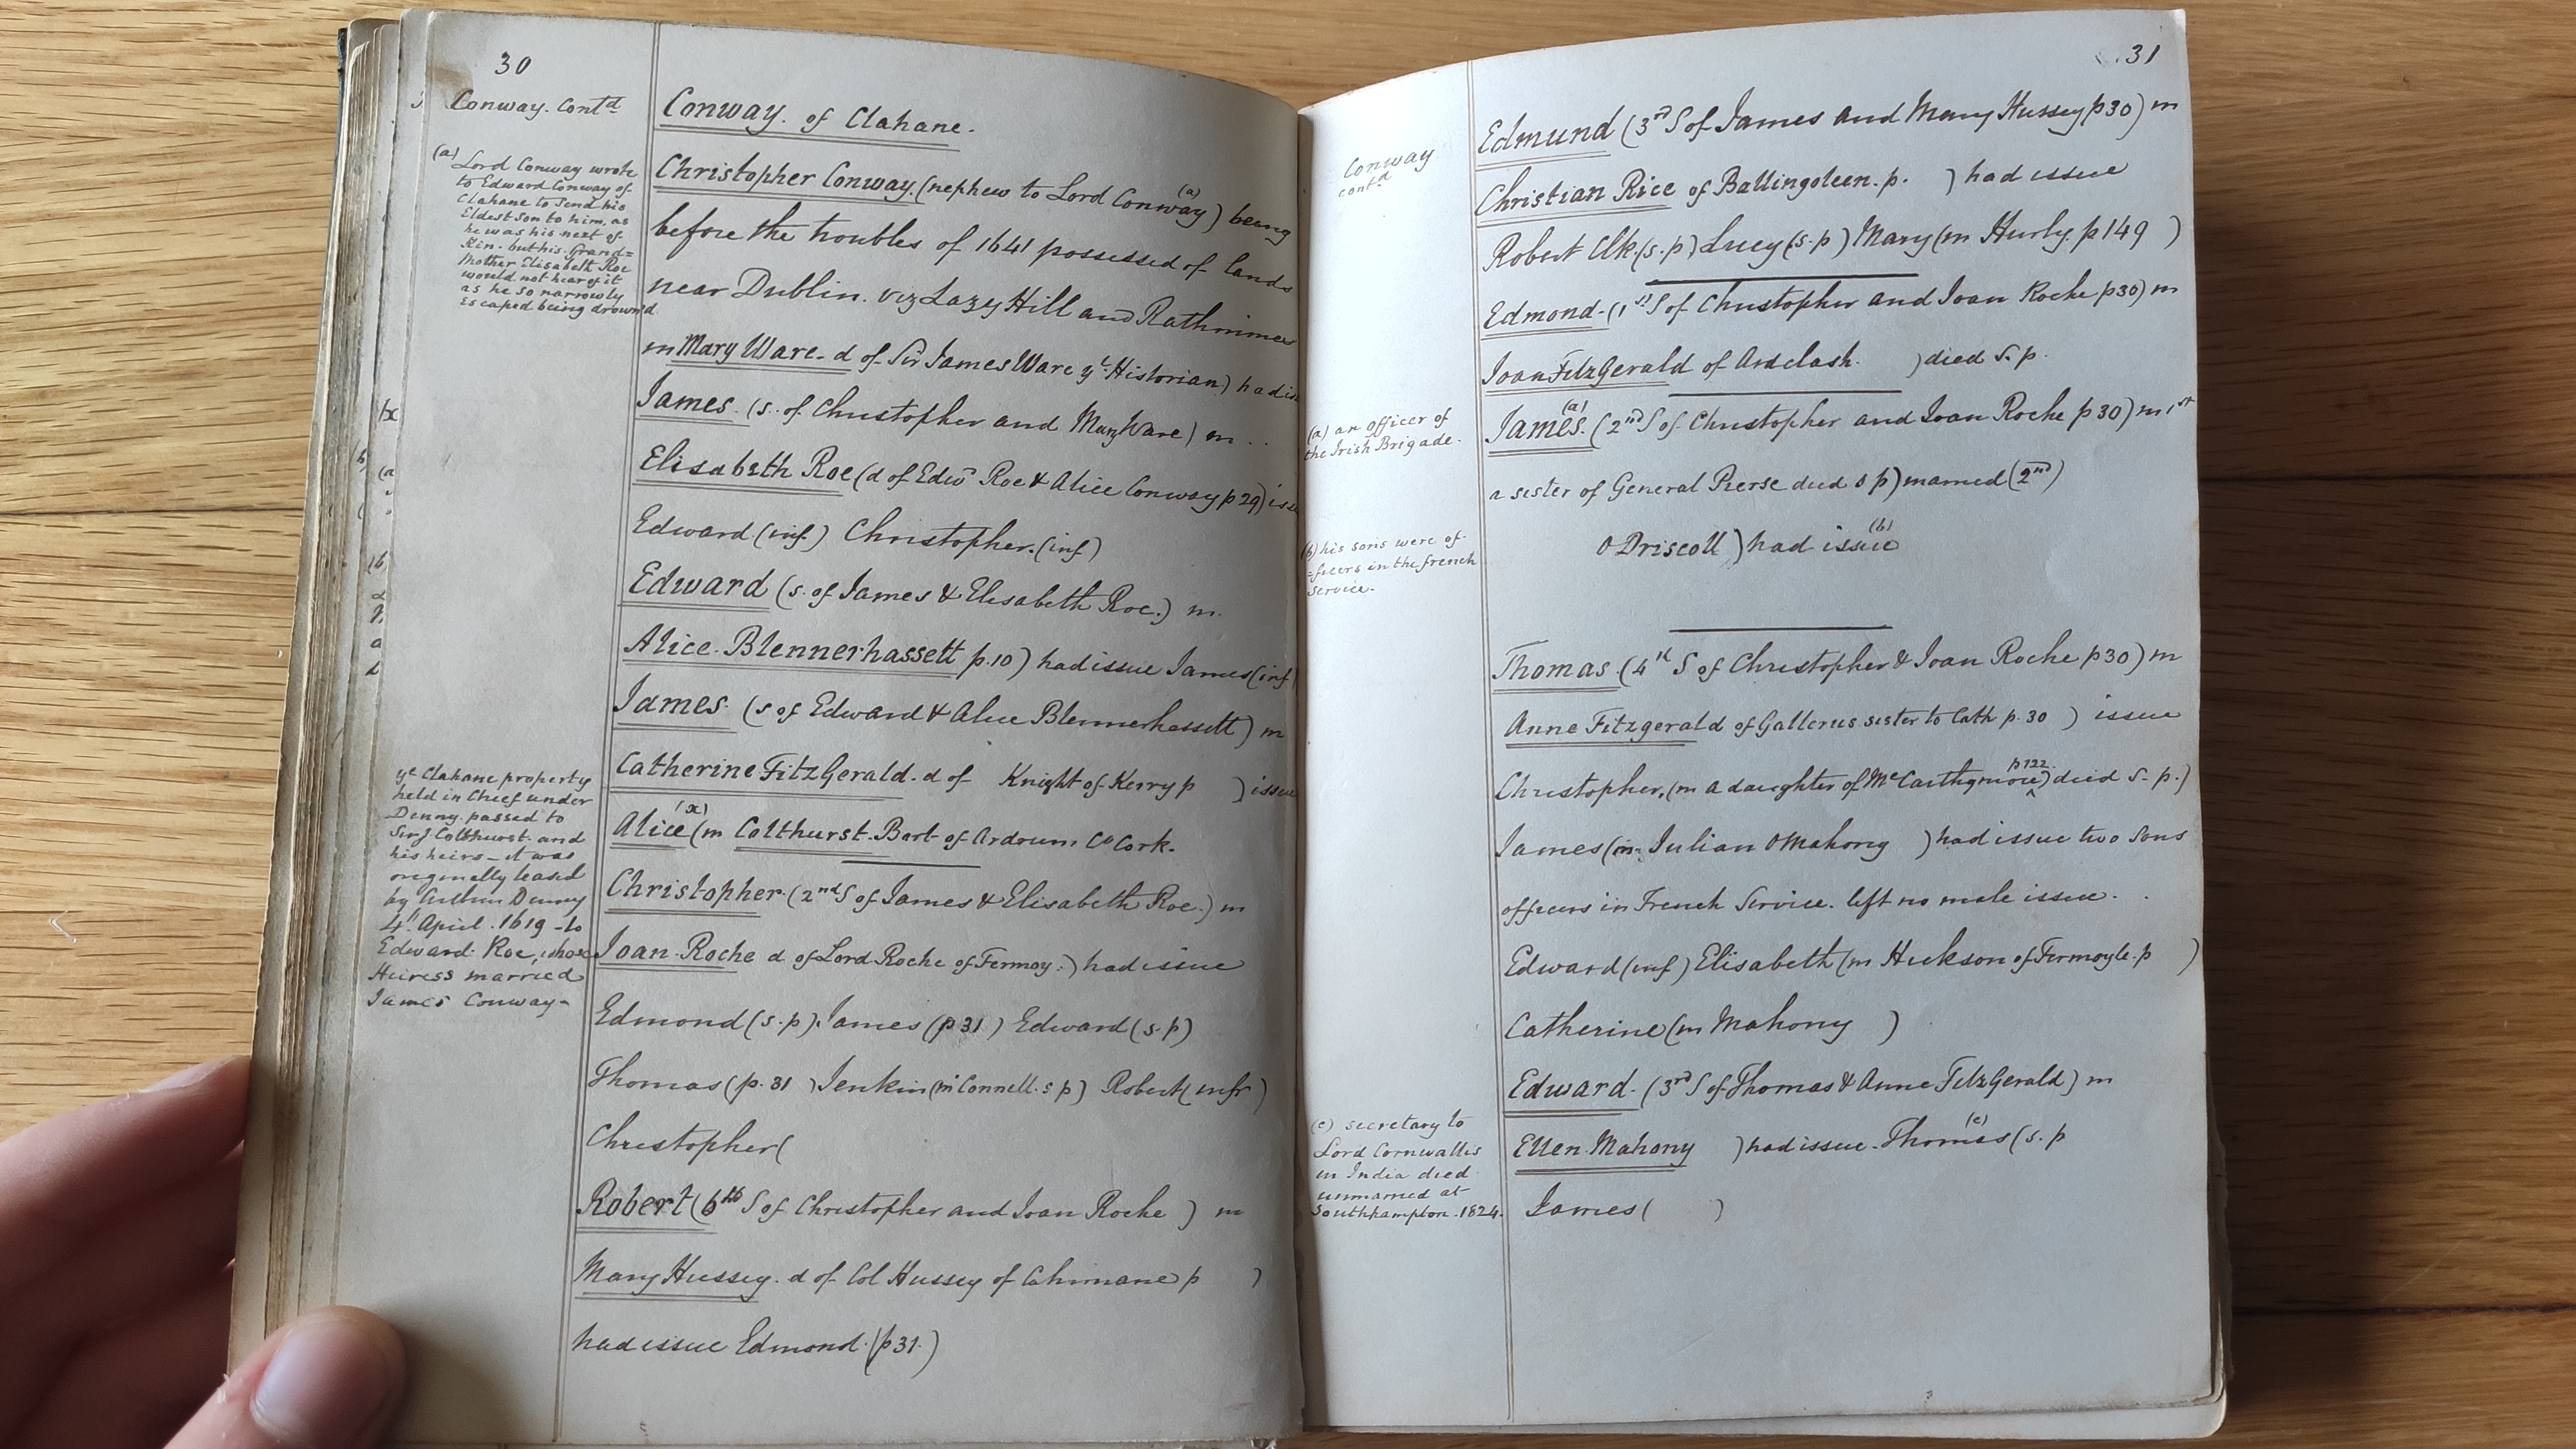 30
Conway. Contd
(a) Lord Conway wrote
to Edward Conway of
Clahane to send his
Eldest Son to him, as
he was his next of
Kin. but his Grand=
Mother Elisabeth Roe
would not hear of it
as he so narrowly
Escaped being drown'd
ye Clahane property
held in Chief under
Denny. passed to
Sir J Colthurst. and
his heirs - it was
originally leased
by Arthur Denny
4th April. 1619 - to
Edward. Roe, whose
Heiress married
James Conway-
Conway. of Clahane.
Christopher Conway. (nephew to Lord Conway (a)) being
before the troubles of 1641 possessed of lands
near Dublin. viz Lazy Hill and Rathmines
m Mary Ware - d of Sir James Ware ye Historian) had is
James. (s. of Christopher and Mary Ware) m . .
Elisabeth Roe (d of Edwd Roe & Alice Conway p 29) issu
Edward (inf.) Christopher. (inf)
Edward (s. of James & Elisabeth Roe.) m.
Alice. Blennerhassett p. 10) had issue James (inf
James. (s of Edward & Alice Blennerhassett) m
Catherine FitzGerald. d of Knight of Kerry p ) issue
Alice (x) (m Colthurst. Bart of Ardrum Co Cork.
Christopher. (2nd S of James & Elisabeth Roe.) m
Joan. Roche d of Lord Roche of Fermoy.) had issue
Edmond (s. p). James (p 31 ) Edward (s. p)
Thomas (p. 31 ) Jenkin (m Connell. s p) Robert (infr )
Christopher (
Robert (6th S of Christopher and Joan Roche ) m
Mary Hussey. d of Col Hussey of Cahirnane p )
had issue Edmond. (p 31.)
31
Conway
contd
(a) an officer of
the Irish Brigade.
(b) his sons were of-
=ficers in the french
service.
(c) secretary to
Lord Cornwallis
in India died
unmarried at
Southhampton. 1824.
Edmund (3rd S of James and Mary Hussey p 30) m
Christian Rice of Ballingoleen. p. ) had issue
Robert Clk. (s. p) Lucy (s. p) Mary (m Hurly. p 149 )
Edmond. (1st S of Christopher and Joan Roche p 30) m
Joan FitzGerald of Ardclash. ) died s. p.
James. (a) (2nd S of Christopher and Joan Roche p 30) m 1st
a sister of General Pierse died s p) married (2nd)
O Driscoll ) had issue (b)
Thomas. (4th S of Christopher & Joan Roche p 30) m
Anne Fitzgerald of Gallerus. sister to Cath p. 30 ) issue
Christopher, (m a daughter of McCarthymore p 122.) died s. p.)
James (m Julian OMahony ) had issue two sons
officers in French Service. left no male issue.
Edward (inf) Elisabeth (m Hickson of Fermoyle. p )
Catherine (m Mahony )
Edward. (3rd S of Thomas & Anne FitzGerald) m
Ellen. Mahony ) had issue. Thomas (c) (s. p
James ( )